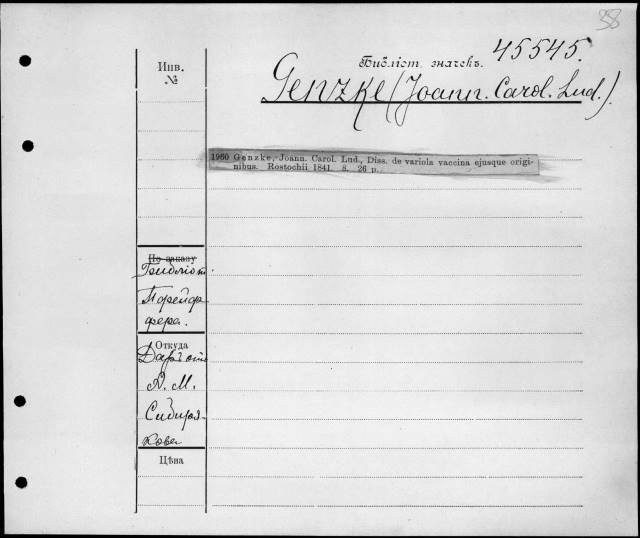 38
Библіот. значекъ. 45545.
Инв.
№
Genzke (Joann. Carol. Lud.).
1960 Genzke, Joann. Carol. Lud., Diss. de variola vaccina ejusque origi-
nibus. Rostochii 1841. 8. 26 p.
По заказу
Библіот.
Откуда
Даръ отъ
А. М.
Сибиря-
кова
Цѣна